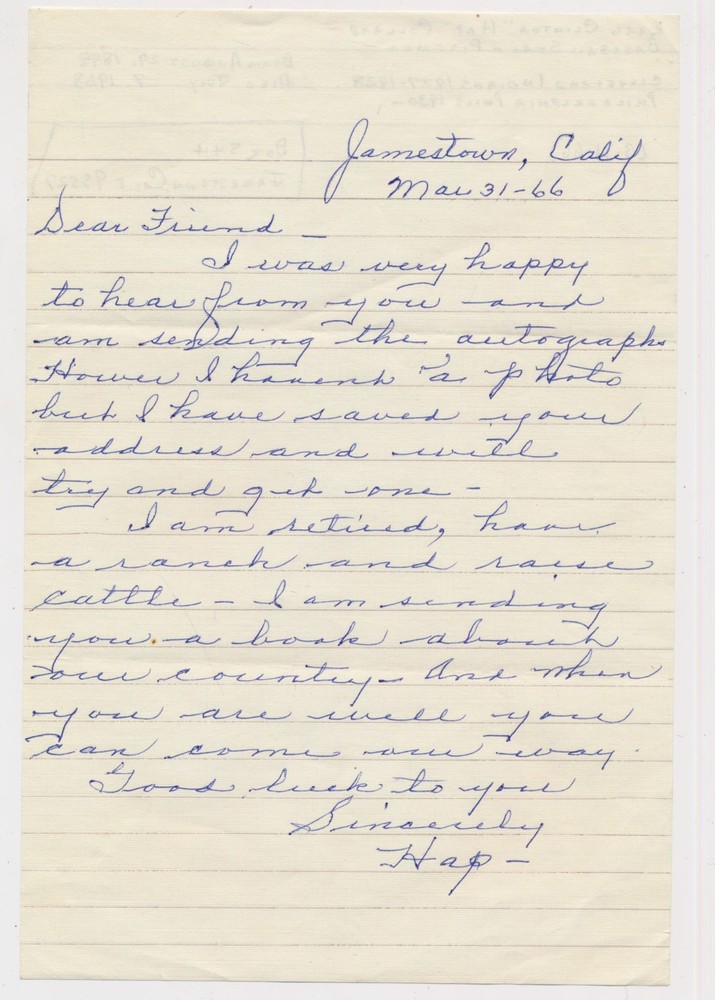 Jamestown, Calif
Mar 31-66
Dear Friend —
I was very happy
to hear from you and
am sending the autographs
Hower I havent a photo
but I have saved your
address and will
try and get one -
I am retired, have
a ranch and raise
cattle - I am sending
you a book about
our country - And when
you are well you
can come our way.
Good luck to you
Sincerely
Hap -